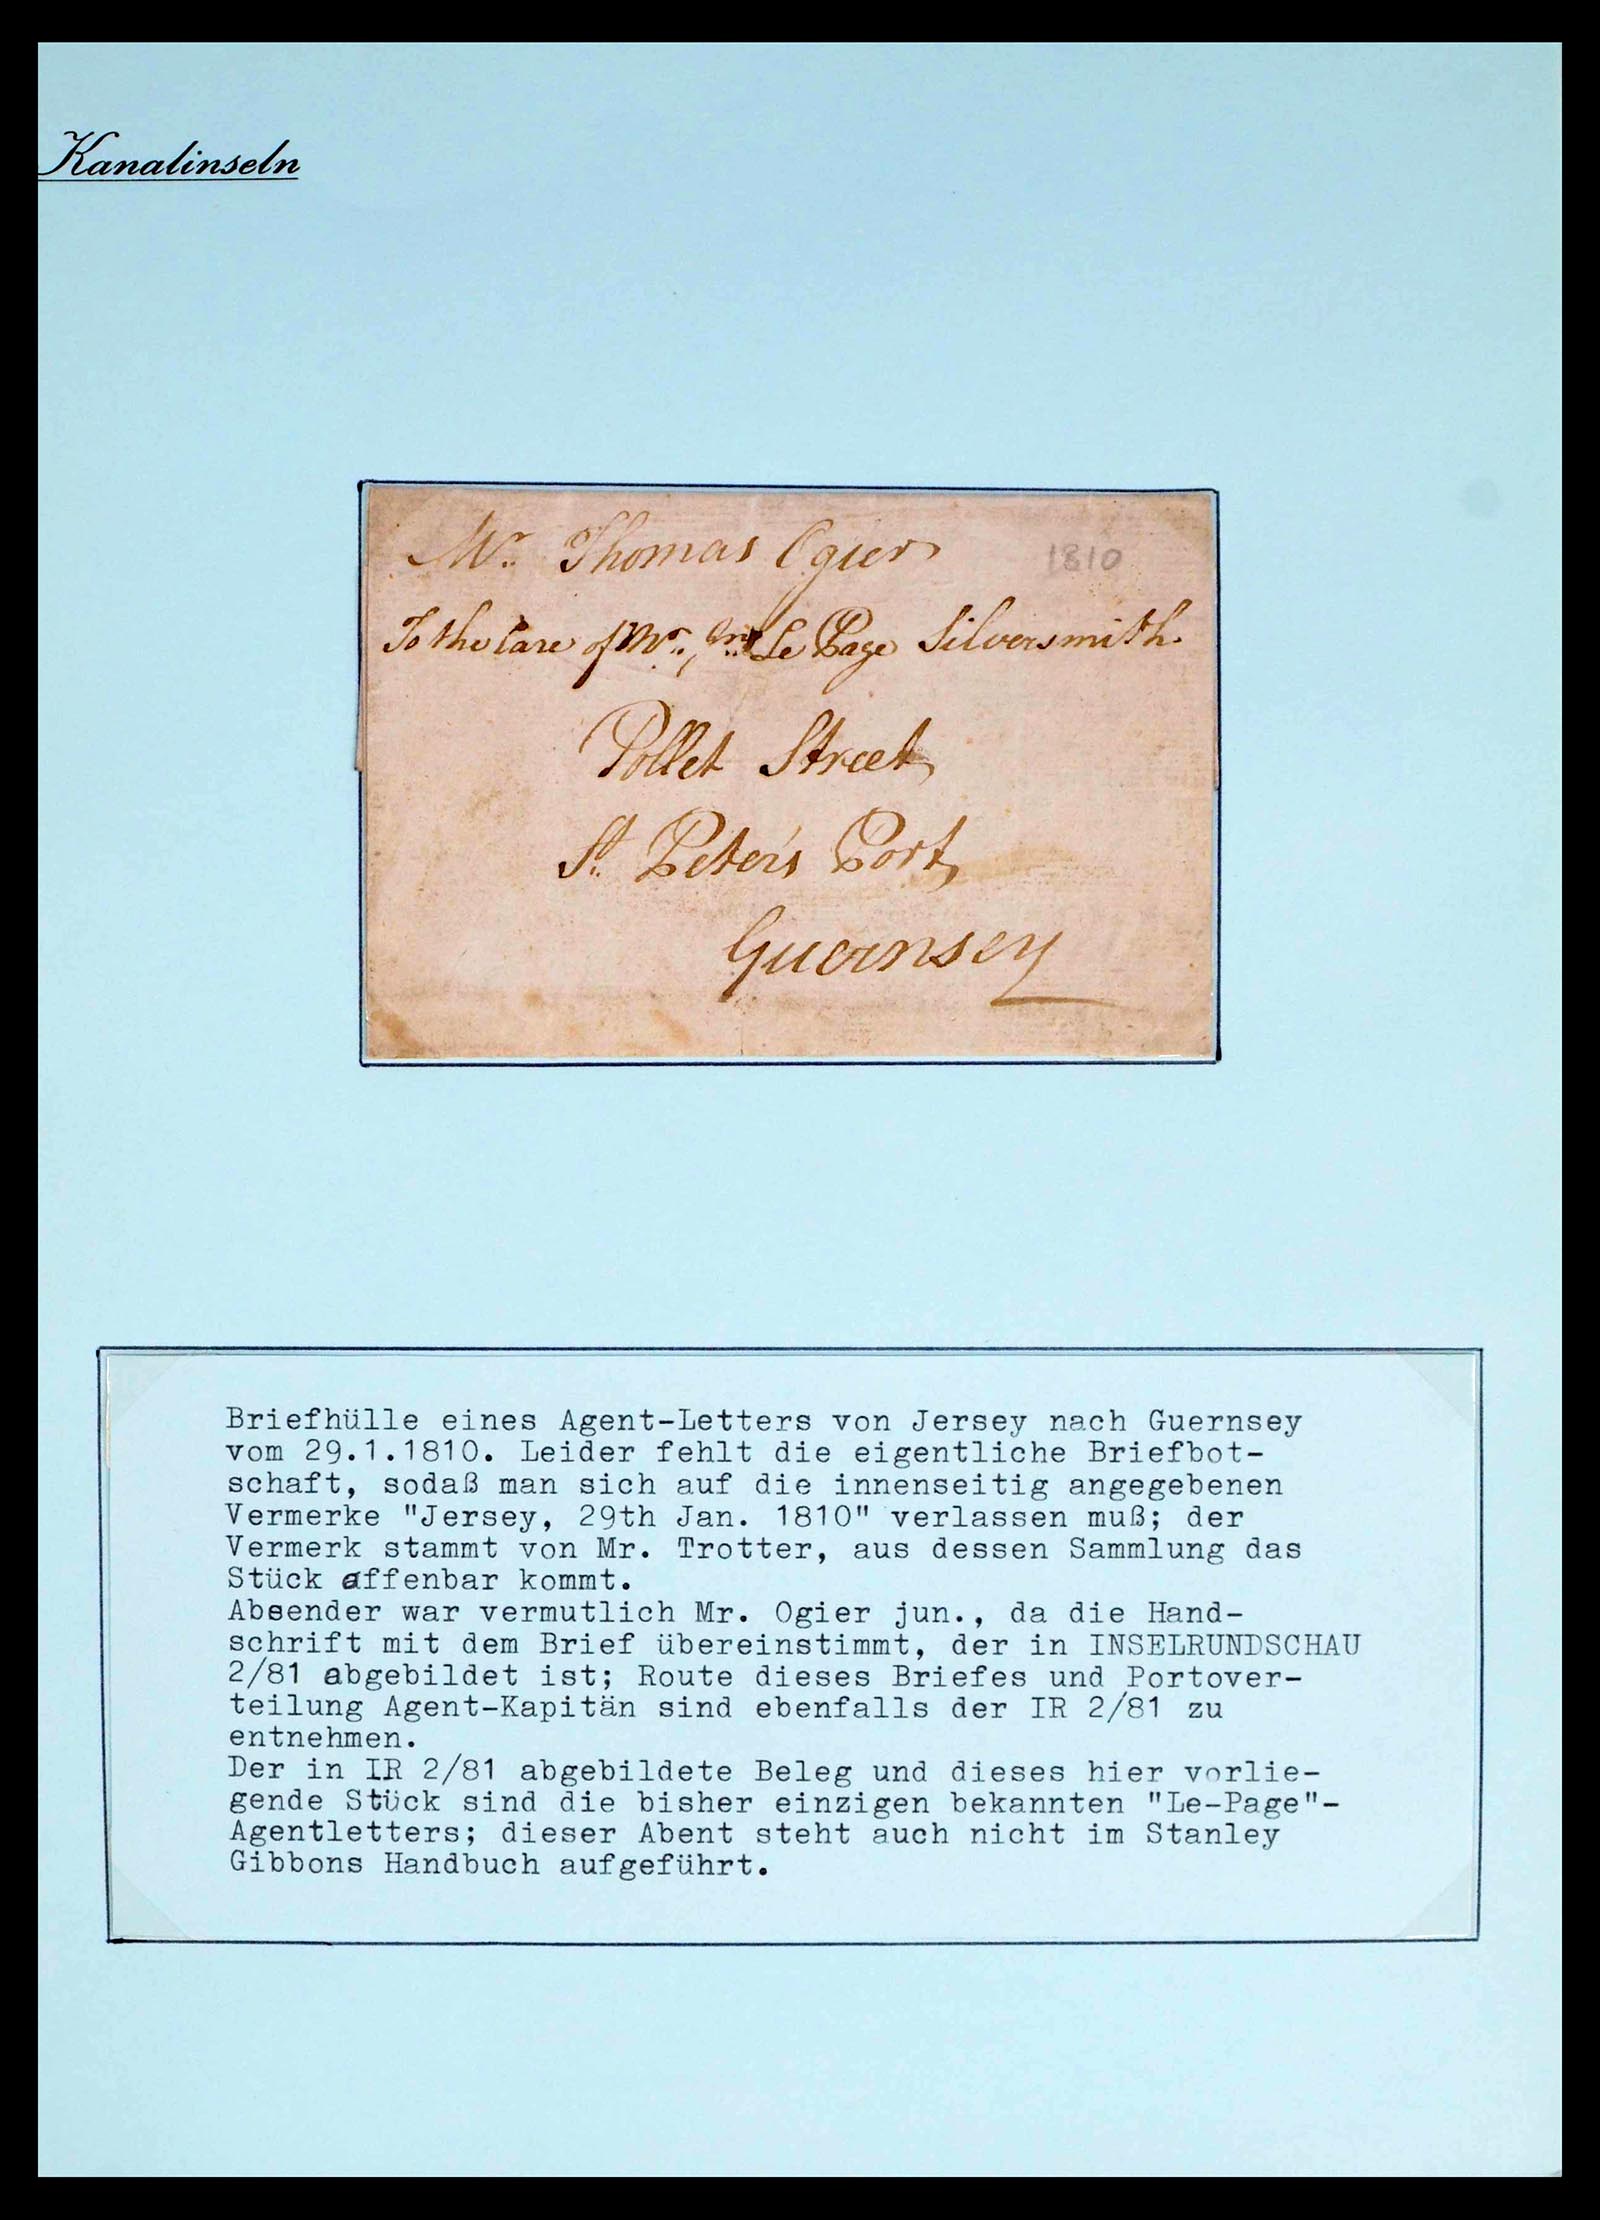 Kanalinseln
Mr. Thomas Ogier
1810
To the Care of Mr. Le Page Silversmith.
Pollet Street
St. Peter's Port
Guernsey
Briefhülle eines Agent-Letters von Jersey nach Guernsey
vom 29.1.1810. Leider fehlt die eigentliche Briefbot-
schaft, sodaß man sich auf die innenseitig angegebenen
Vermerke "Jersey, 29th Jan. 1810" verlassen muß; der
Vermerk stammt von Mr. Trotter, aus dessen Sammlung das
Stück offenbar kommt.
Absender war vermutlich Mr. Ogier jun., da die Hand-
schrift mit dem Brief übereinstimmt, der in INSELRUNDSCHAU
2/81 abgebildet ist; Route dieses Briefes und Portover-
teilung Agent-Kapitän sind ebenfalls der IR 2/81 zu
entnehmen.
Der in IR 2/81 abgebildete Beleg und dieses hier vorlie-
gende Stück sind die bisher einzigen bekannten "Le-Page"-
Agentletters; dieser Abent steht auch nicht im Stanley
Gibbons Handbuch aufgeführt.